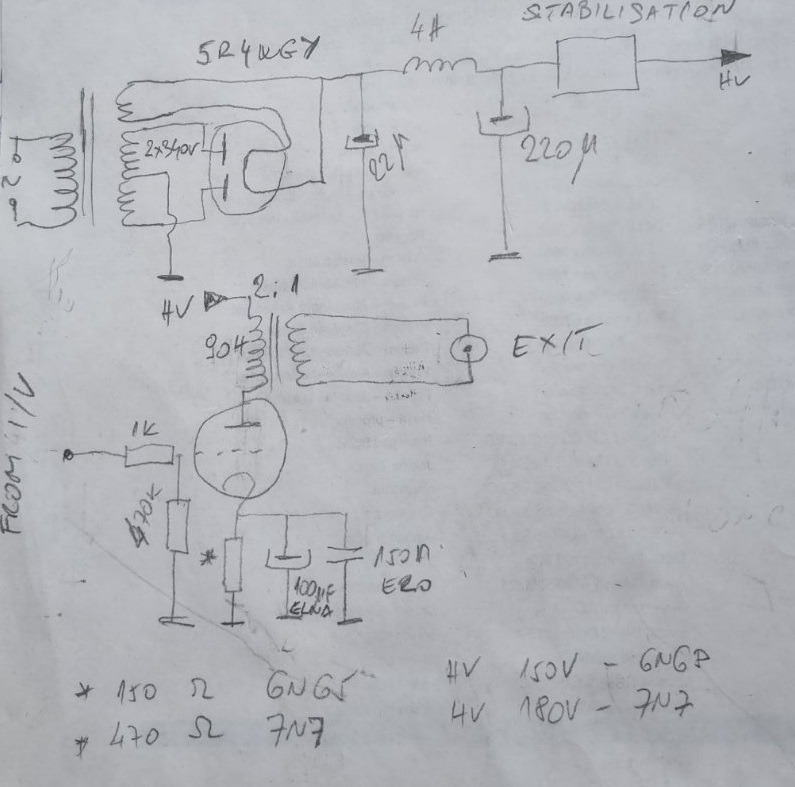 STABILISATION
4H
5R4WGY
HV
2x340V
22µ
220µ
HV
2:1
90H
EXIT
FROM I/V
1K
470K
*
100µF
ELNA
150n
ERO
* 150 Ω 6N6S
* 470 Ω 7N7
HV 150V - 6N6P
HV 180V - 7N7